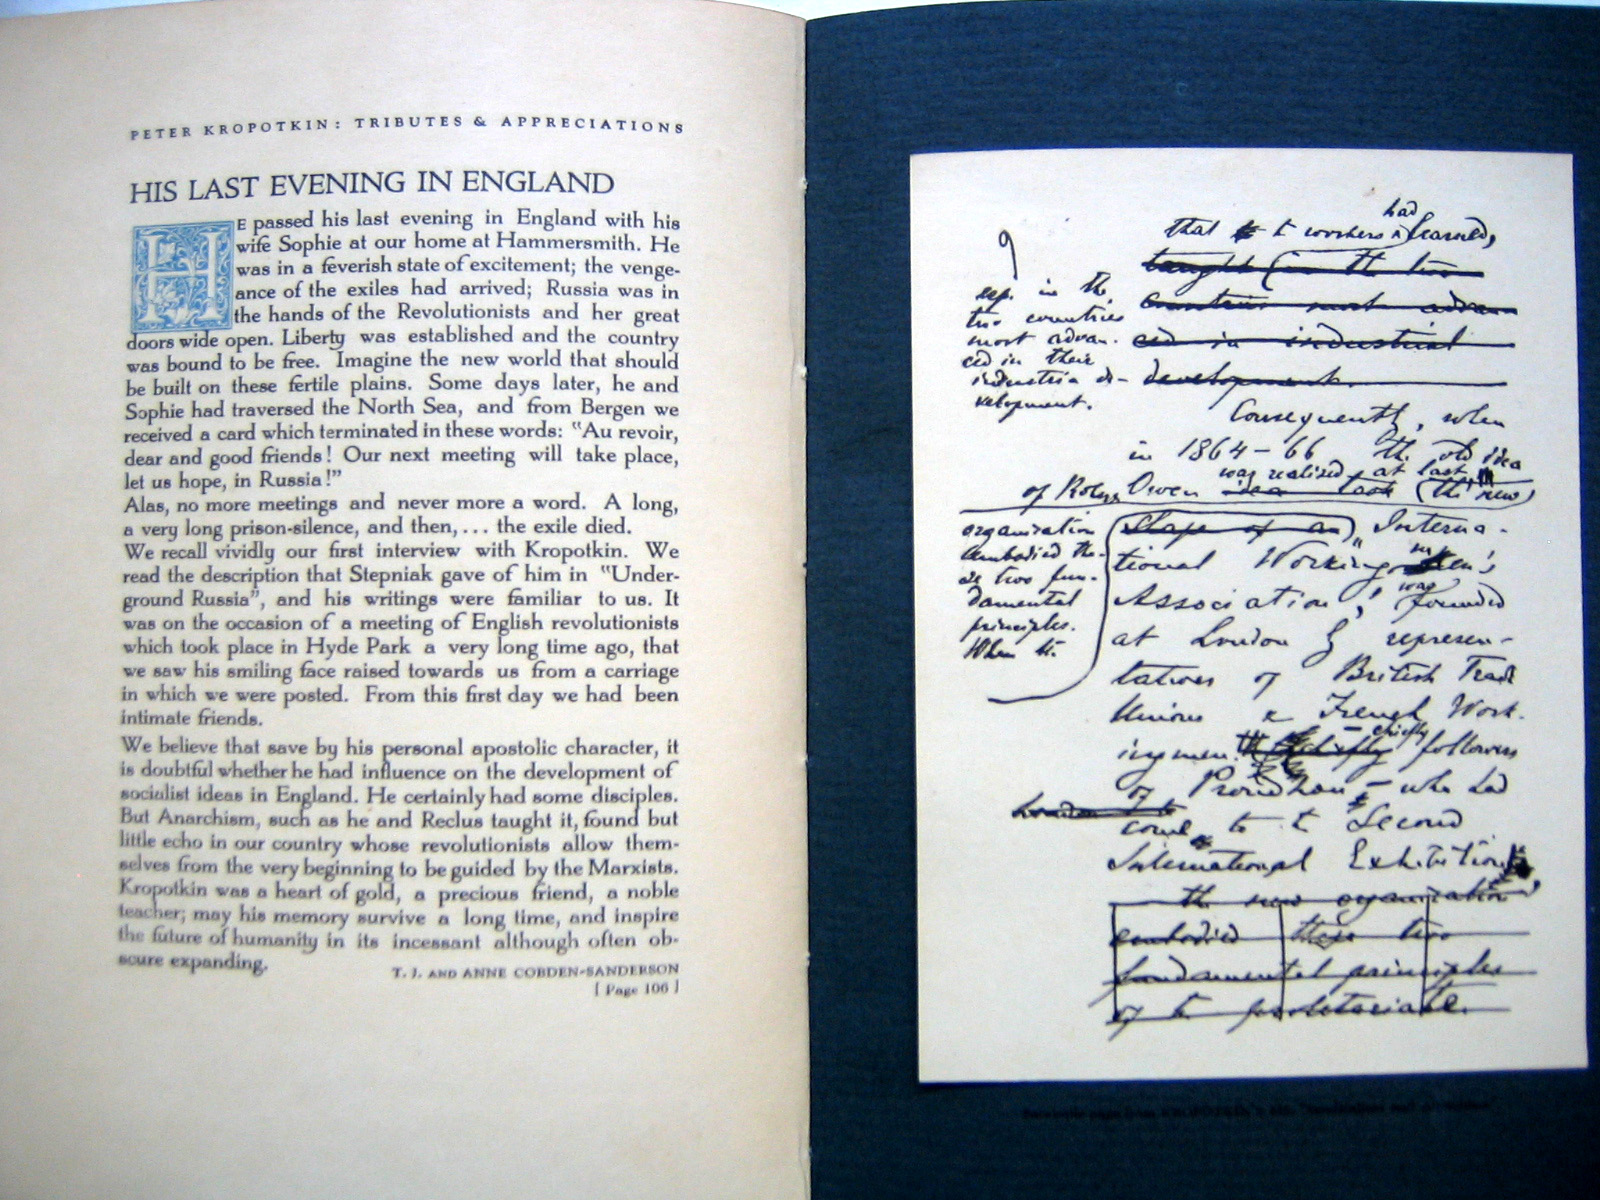 PETER KROPOTKIN: TRIBUTES & APPRECIATIONS
HIS LAST EVENING IN ENGLAND
HE passed his last evening in England with his
wife Sophie at our home at Hammersmith. He
was in a feverish state of excitement; the venge-
ance of the exiles had arrived; Russia was in
the hands of the Revolutionists and her great
doors wide open. Liberty was established and the country
was bound to be free. Imagine the new world that should
be built on these fertile plains. Some days later, he and
Sophie had traversed the North Sea, and from Bergen we
received a card which terminated in these words: "Au revoir,
dear and good friends! Our next meeting will take place,
let us hope, in Russia!"
Alas, no more meetings and never more a word. A long,
a very long prison-silence, and then,... the exile died.
We recall vividly our first interview with Kropotkin. We
read the description that Stepniak gave of him in "Under-
ground Russia", and his writings were familiar to us. It
was on the occasion of a meeting of English revolutionists
which took place in Hyde Park a very long time ago, that
we saw his smiling face raised towards us from a carriage
in which we were posted. From this first day we had been
intimate friends.
We believe that save by his personal apostolic character, it
is doubtful whether he had influence on the development of
socialist ideas in England. He certainly had some disciples.
But Anarchism, such as he and Reclus taught it, found but
little echo in our country whose revolutionists allow them-
selves from the very beginning to be guided by the Marxists.
Kropotkin was a heart of gold, a precious friend, a noble
teacher; may his memory survive a long time, and inspire
the future of humanity in its incessant although often ob-
scure expanding.
T. J. AND ANNE COBDEN-SANDERSON
[ Page 106 ]
9
had
that t workers learned,
taught (in th two
countries most advan
ced in industrial
development.
esp. in the
two countries
most advan-
ced in their
industria de-
velopment.
Consequently, when
in 1864-66 the old idea
was realised at last
of Robert Owen idea took (the new
organisation
embodied the-
se two fun-
damental
principles.
When th.
shape of an) Interna-
tional Working men's
Association, was founded
at London by represen-
tatives of British Trade
Unions & French Work-
ingmen chiefly followers
of Proudhon - who had
come to t Second
International Exhibition
the new organization
embodied these two
fundamental principles
of t proletariate.